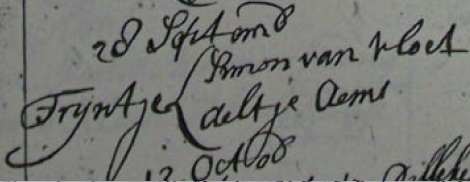 28 Septemb
Simon van vloet
Tryntje
aeltje Aems
12 Octob